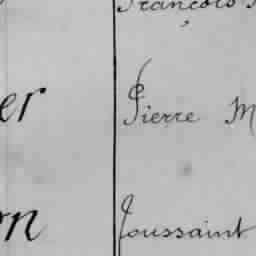 François
er Pierre M
on Toussaint